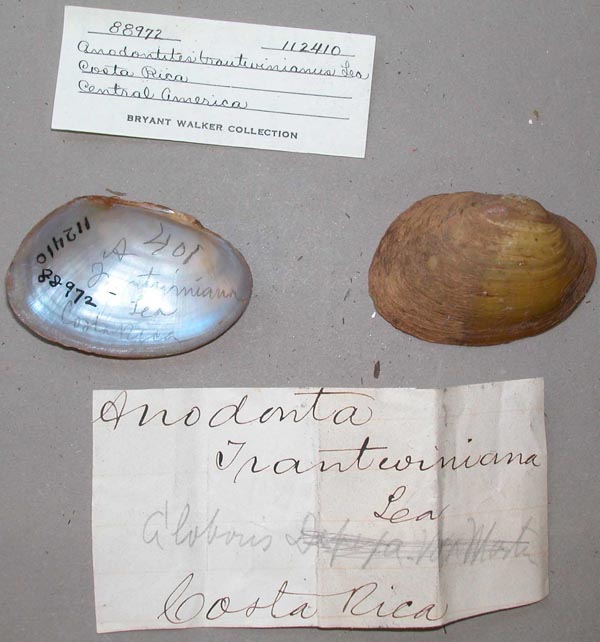 88972 112410
Anodontites trautwinianus Lea
Costa Rica
Central America
BRYANT WALKER COLLECTION
112410
88972
A 401
Trantwiniana
Lea
Costa Rica
Anodonta
Trantwiniana
Lea
Costa Rica